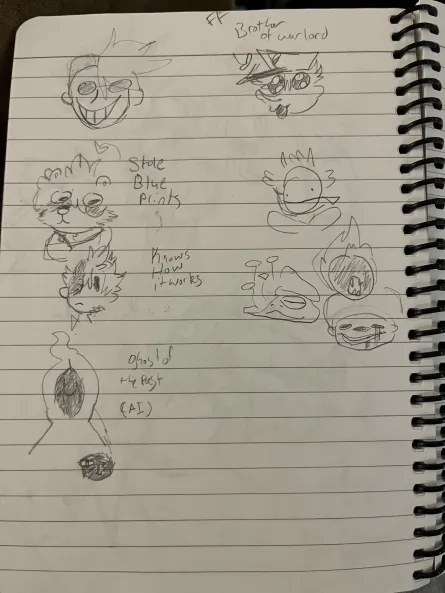 Brother
of warlord
Stole
Blue
Prints
Knows
How
it works
Ghost of
the Past
(AI)